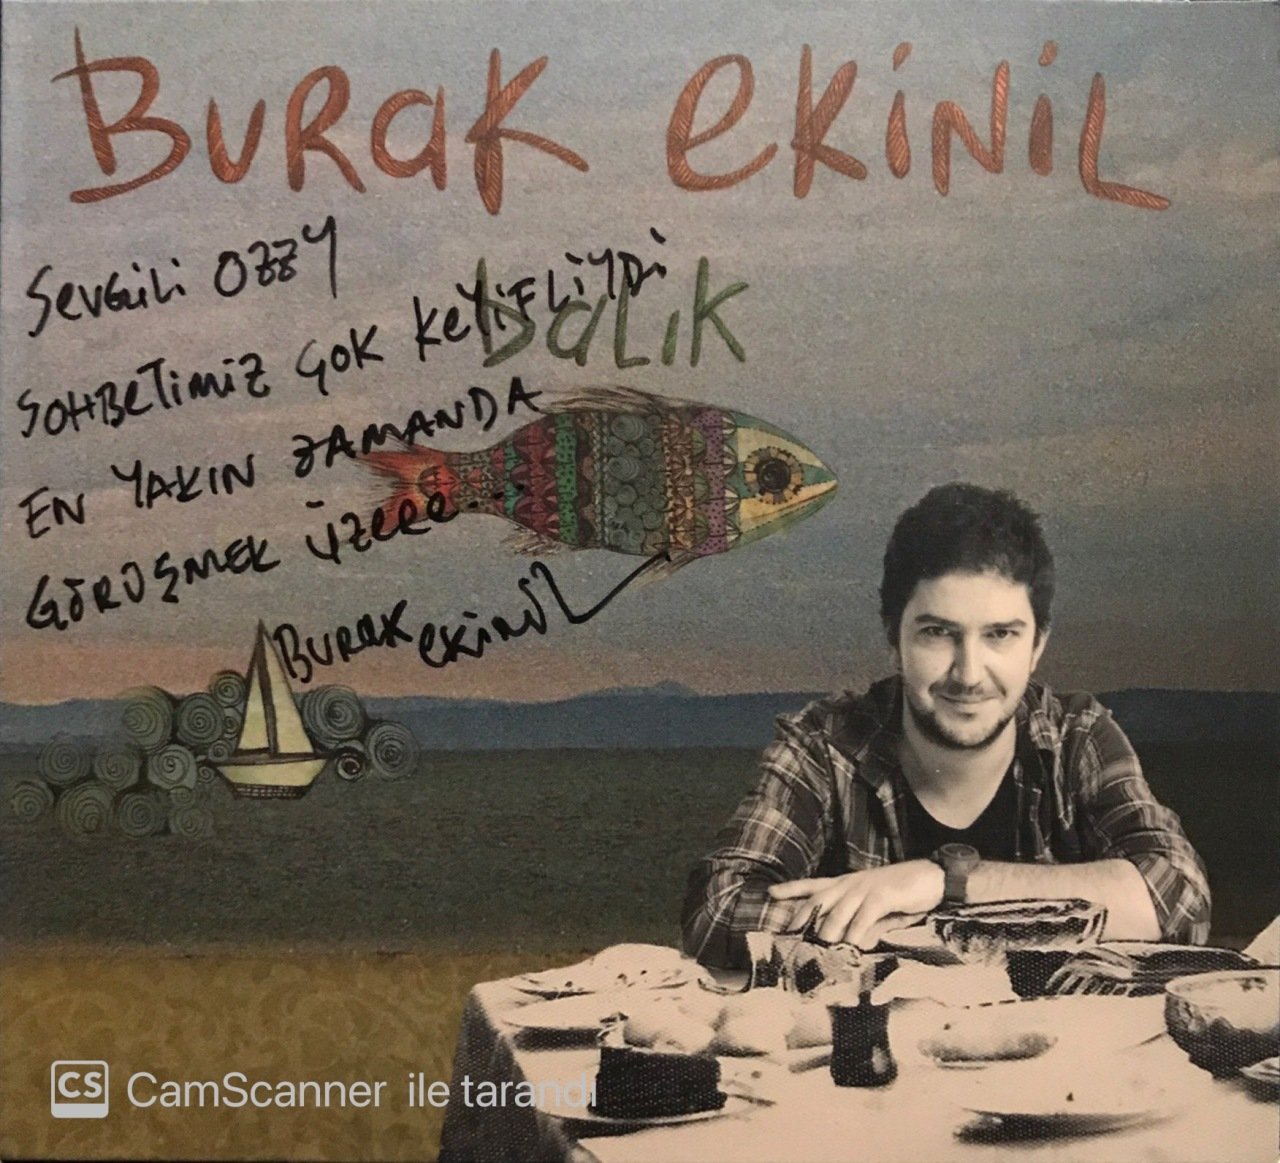 BURAK EKİNİL
SEVGİLİ OZZY
BALIK
SOHBETİMİZ ÇOK KEYİFLİYDİ
EN YAKIN ZAMANDA
GÖRÜŞMEK ÜZERE...
BURAK EKİNİL
CS CamScanner ile tarandı